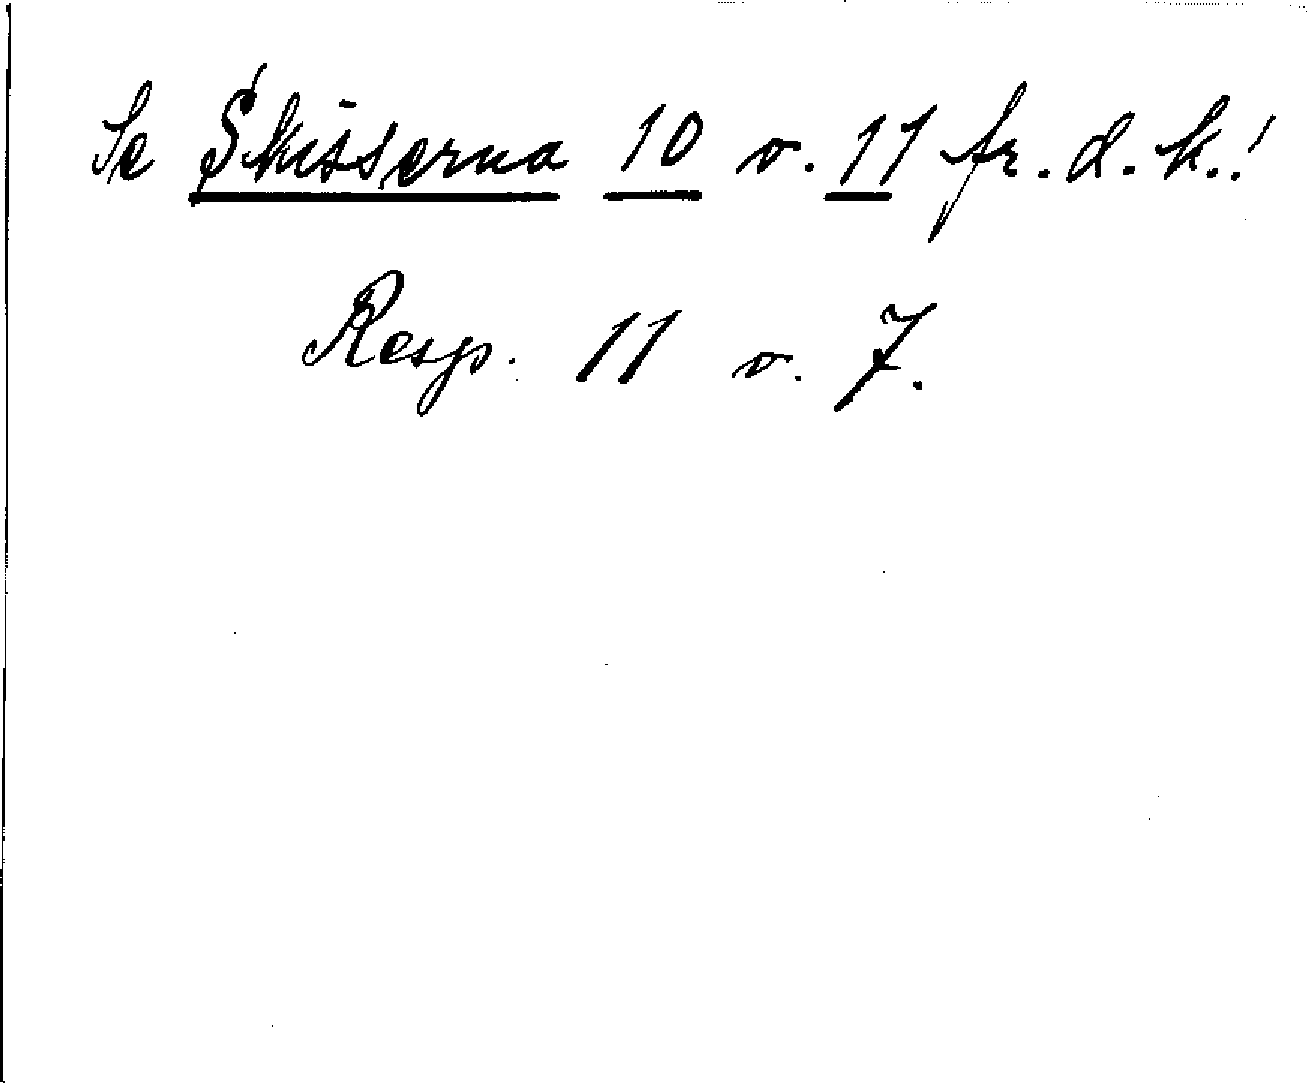 Se Skisserna 10 v. 11 fr. d. k.!
Resp. 11 v. 7.